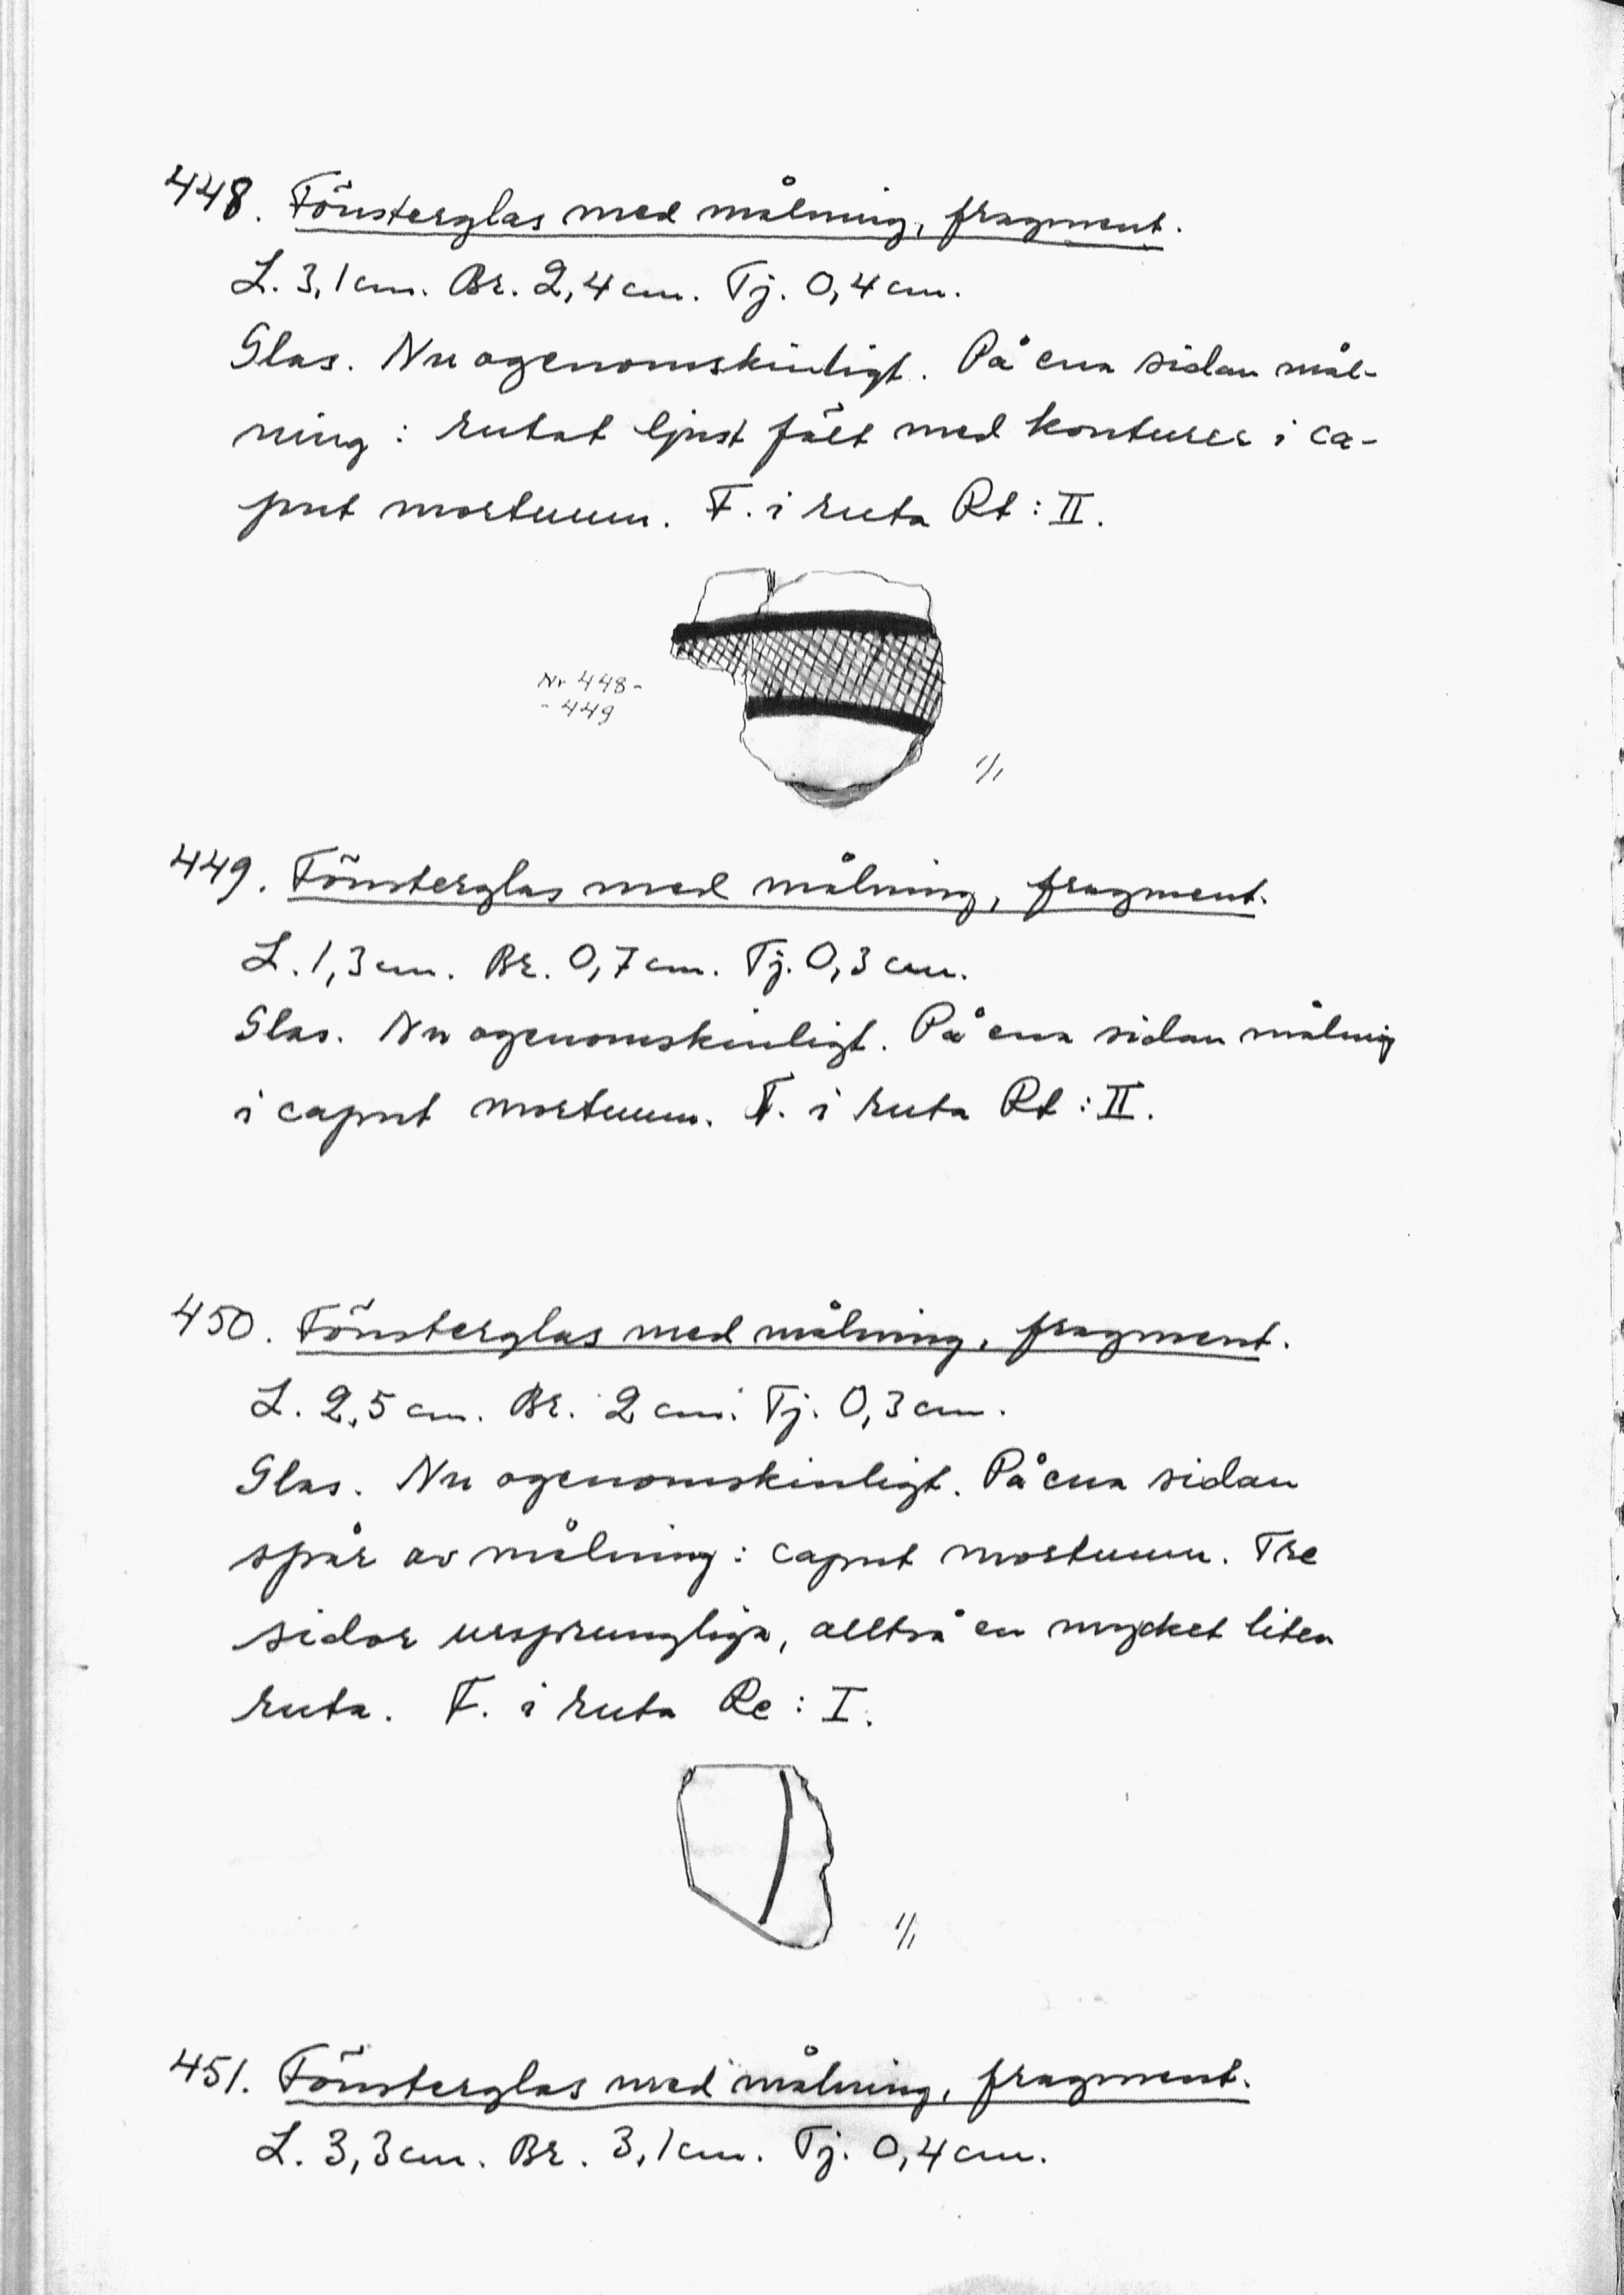 448. Fönsterglas med målning, fragment.
L. 3,1 cm. Br. 2,4 cm. Tj. 0,4 cm.
Glas. Nu ogenomskinligt. På ena sidan mål-
ning: rutat ljust fält med konturer i ca-
put mortuum. F. i ruta Rt: II.
Nr 448-
- 449
1/1
449. Fönsterglas med målning, fragment.
L. 1,3 cm. Br. 0,7 cm. Tj. 0,3 cm.
Glas. Nu ogenomskinligt. På ena sidan målning
i caput mortuum. F. i ruta Rt: II.
450. Fönsterglas med målning, fragment.
L. 2,5 cm. Br. 2 cm. Tj. 0,3 cm.
Glas. Nu ogenomskinligt. På ena sidan
spår av målning: caput mortuum. Tre
sidor ursprungliga, alltså en mycket liten
ruta. F. i ruta Re: I.
1/1
451. Fönsterglas med målning, fragment.
L. 3,3 cm. Br. 3,1 cm. Tj. 0,4 cm.